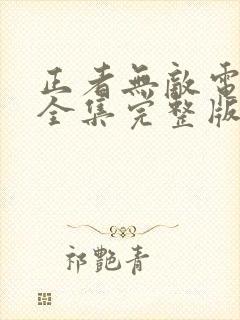 正者無敵電
全集完整版
祁艷青